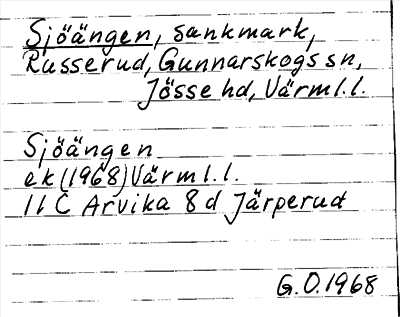 Sjöängen, sankmark,
Russerud, Gunnarskogs sn,
Jösse hd, Värml.l.
Sjöängen
ek (1968) Värml.l.
11 C Arvika 8 d Järperud
G.O. 1968